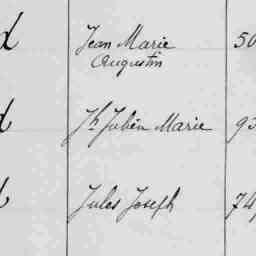 d Jean Marie 50
Augustin
d Jh Julien Marie 93
d Jules Joseph 74